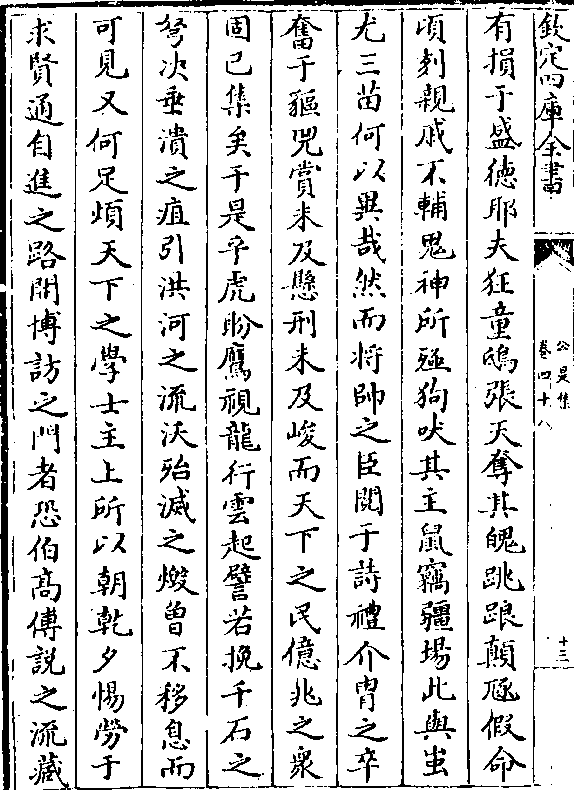 欽定四庫全書
公是集
卷四十八
十三
有損于盛德耶夫狂童鴟張天奪其魄跳踉顛頤假命
頃刻親戚不輔鬼神所殛狗吠其主鼠竊疆場此與蚩
尤三苗何以異哉然而將帥之臣閱于詩禮介胄之卒
奮于貙兕賞未及懸刑未及峻而天下之民億兆之衆
固已集矣于是乎虎盻鷹視龍行雲起譬若挽千石之
弩決垂潰之疽引洪河之流沃殆滅之燬曽不移息而
可見又何足煩天下之學士主上所以朝乾夕惕勞于
求賢通自進之路開博訪之門者恐伯髙傅說之流藏